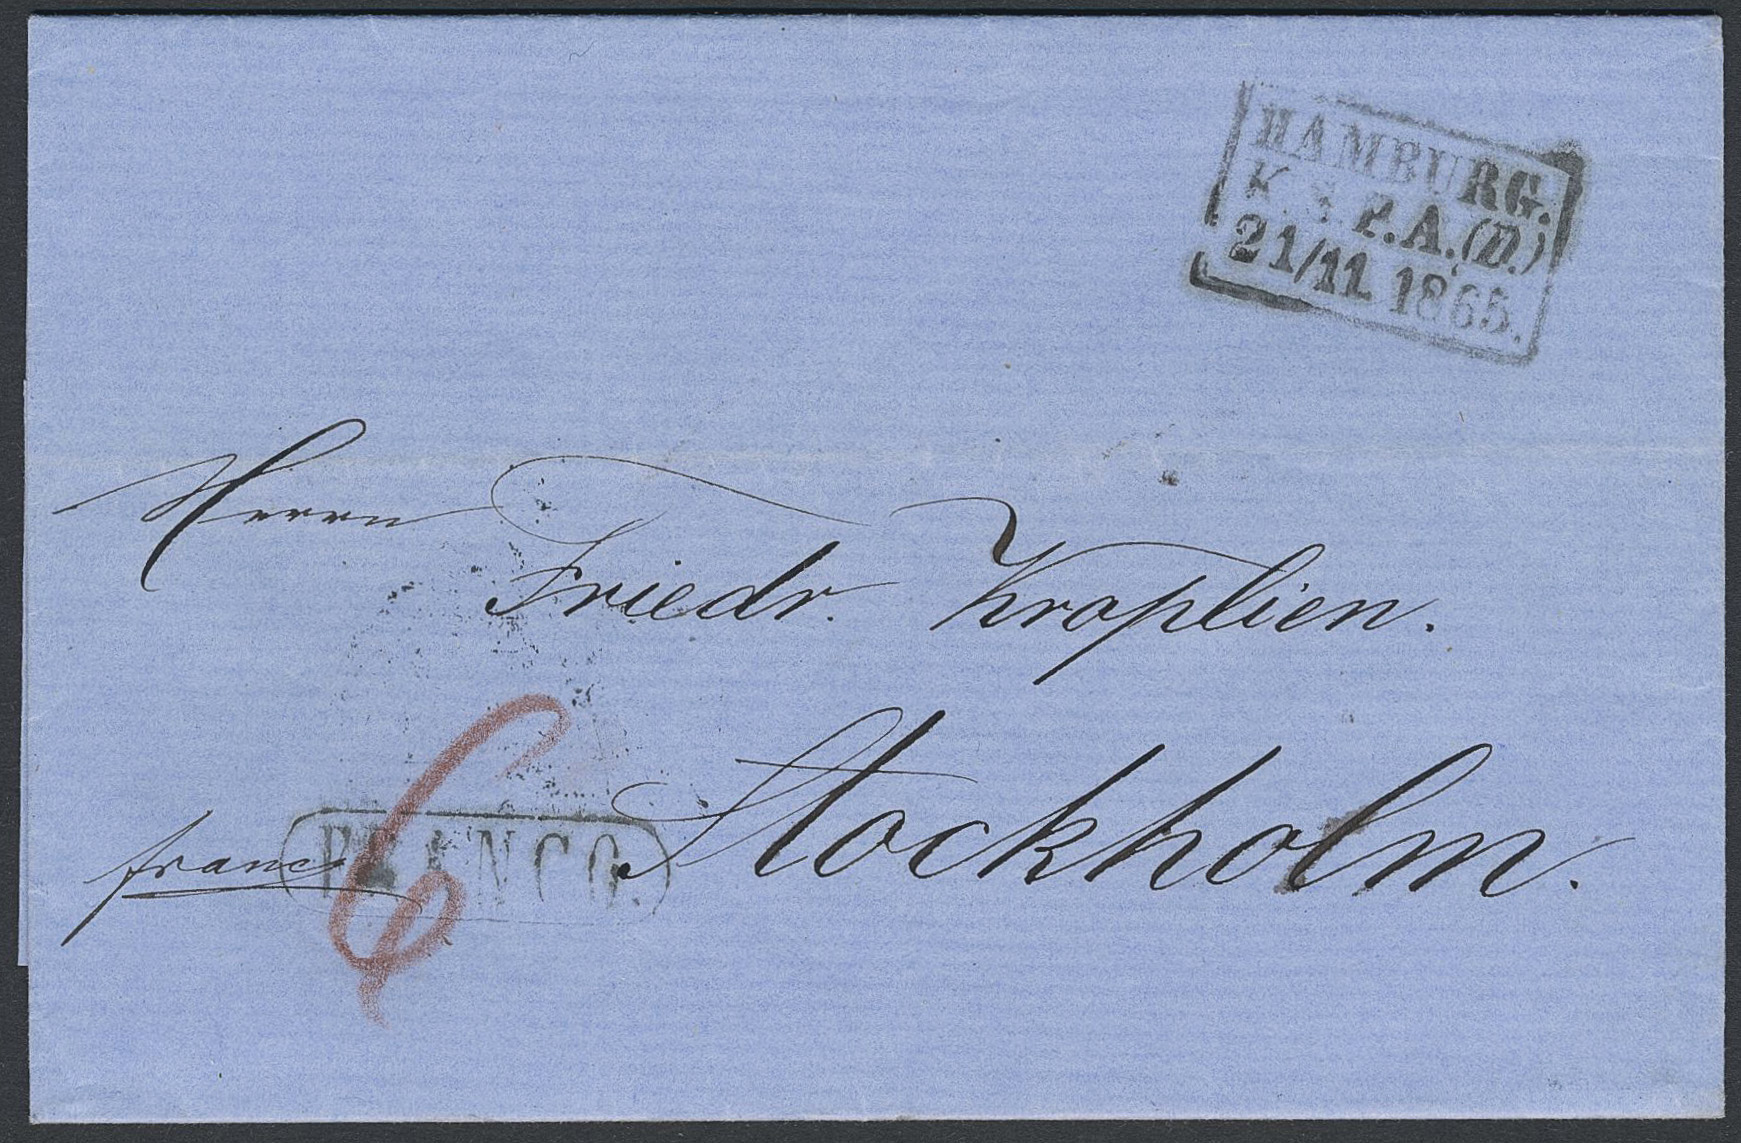 HAMBURG.
K. S. P. A. (D.)
21/11. 1865.
Herrn
Friedr. Kroplien.
Stockholm.
franco
FRANCO.
6